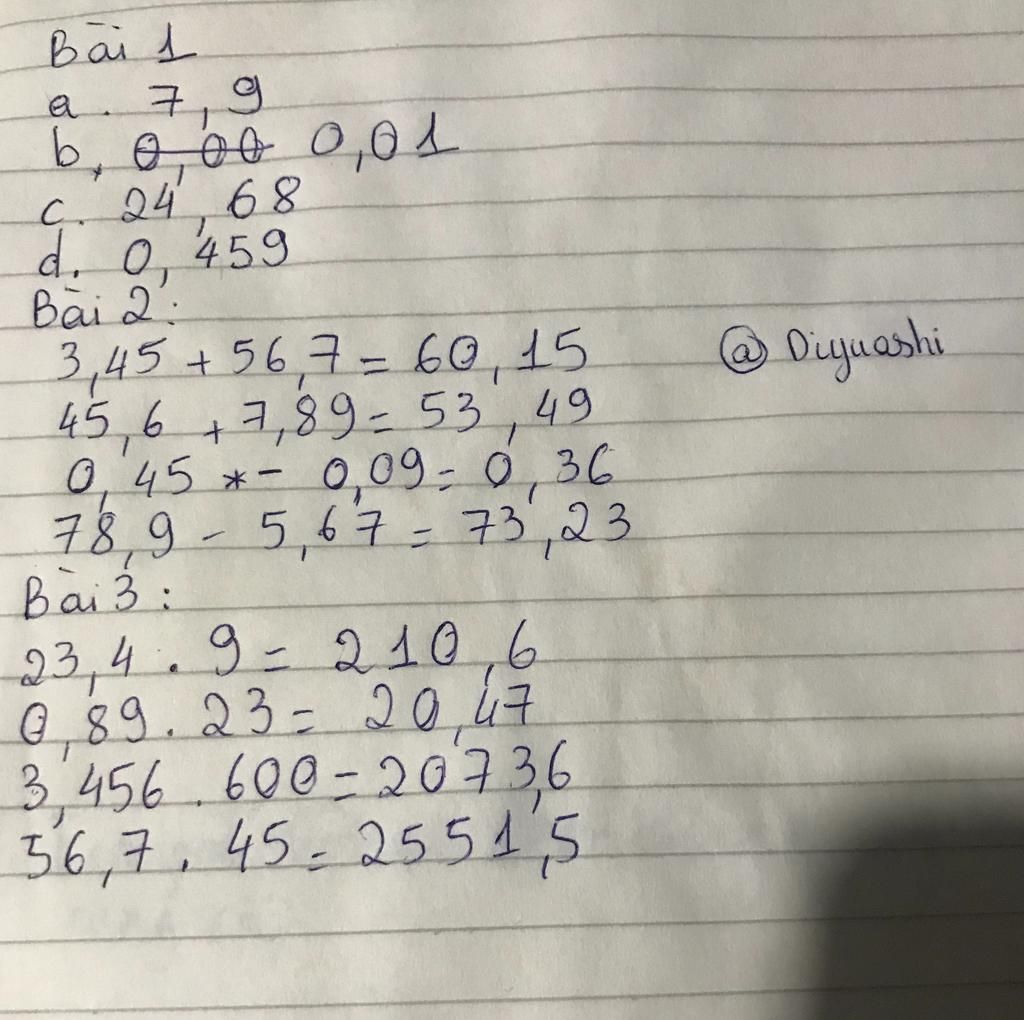 Bài 1
a. 7,9
b, 0,00 0,01
c. 24,68
d. 0,459
Bài 2:
3,45 + 56,7 = 60,15 @ Diyuashi
45,6 + 7,89 = 53,49
0,45 *- 0,09 = 0,36
78,9 - 5,67 = 73,23
Bài 3:
23,4 . 9 = 210,6
0,89 . 23 = 20,47
3,456 . 600 = 2073,6
56,7 . 45 = 2551,5